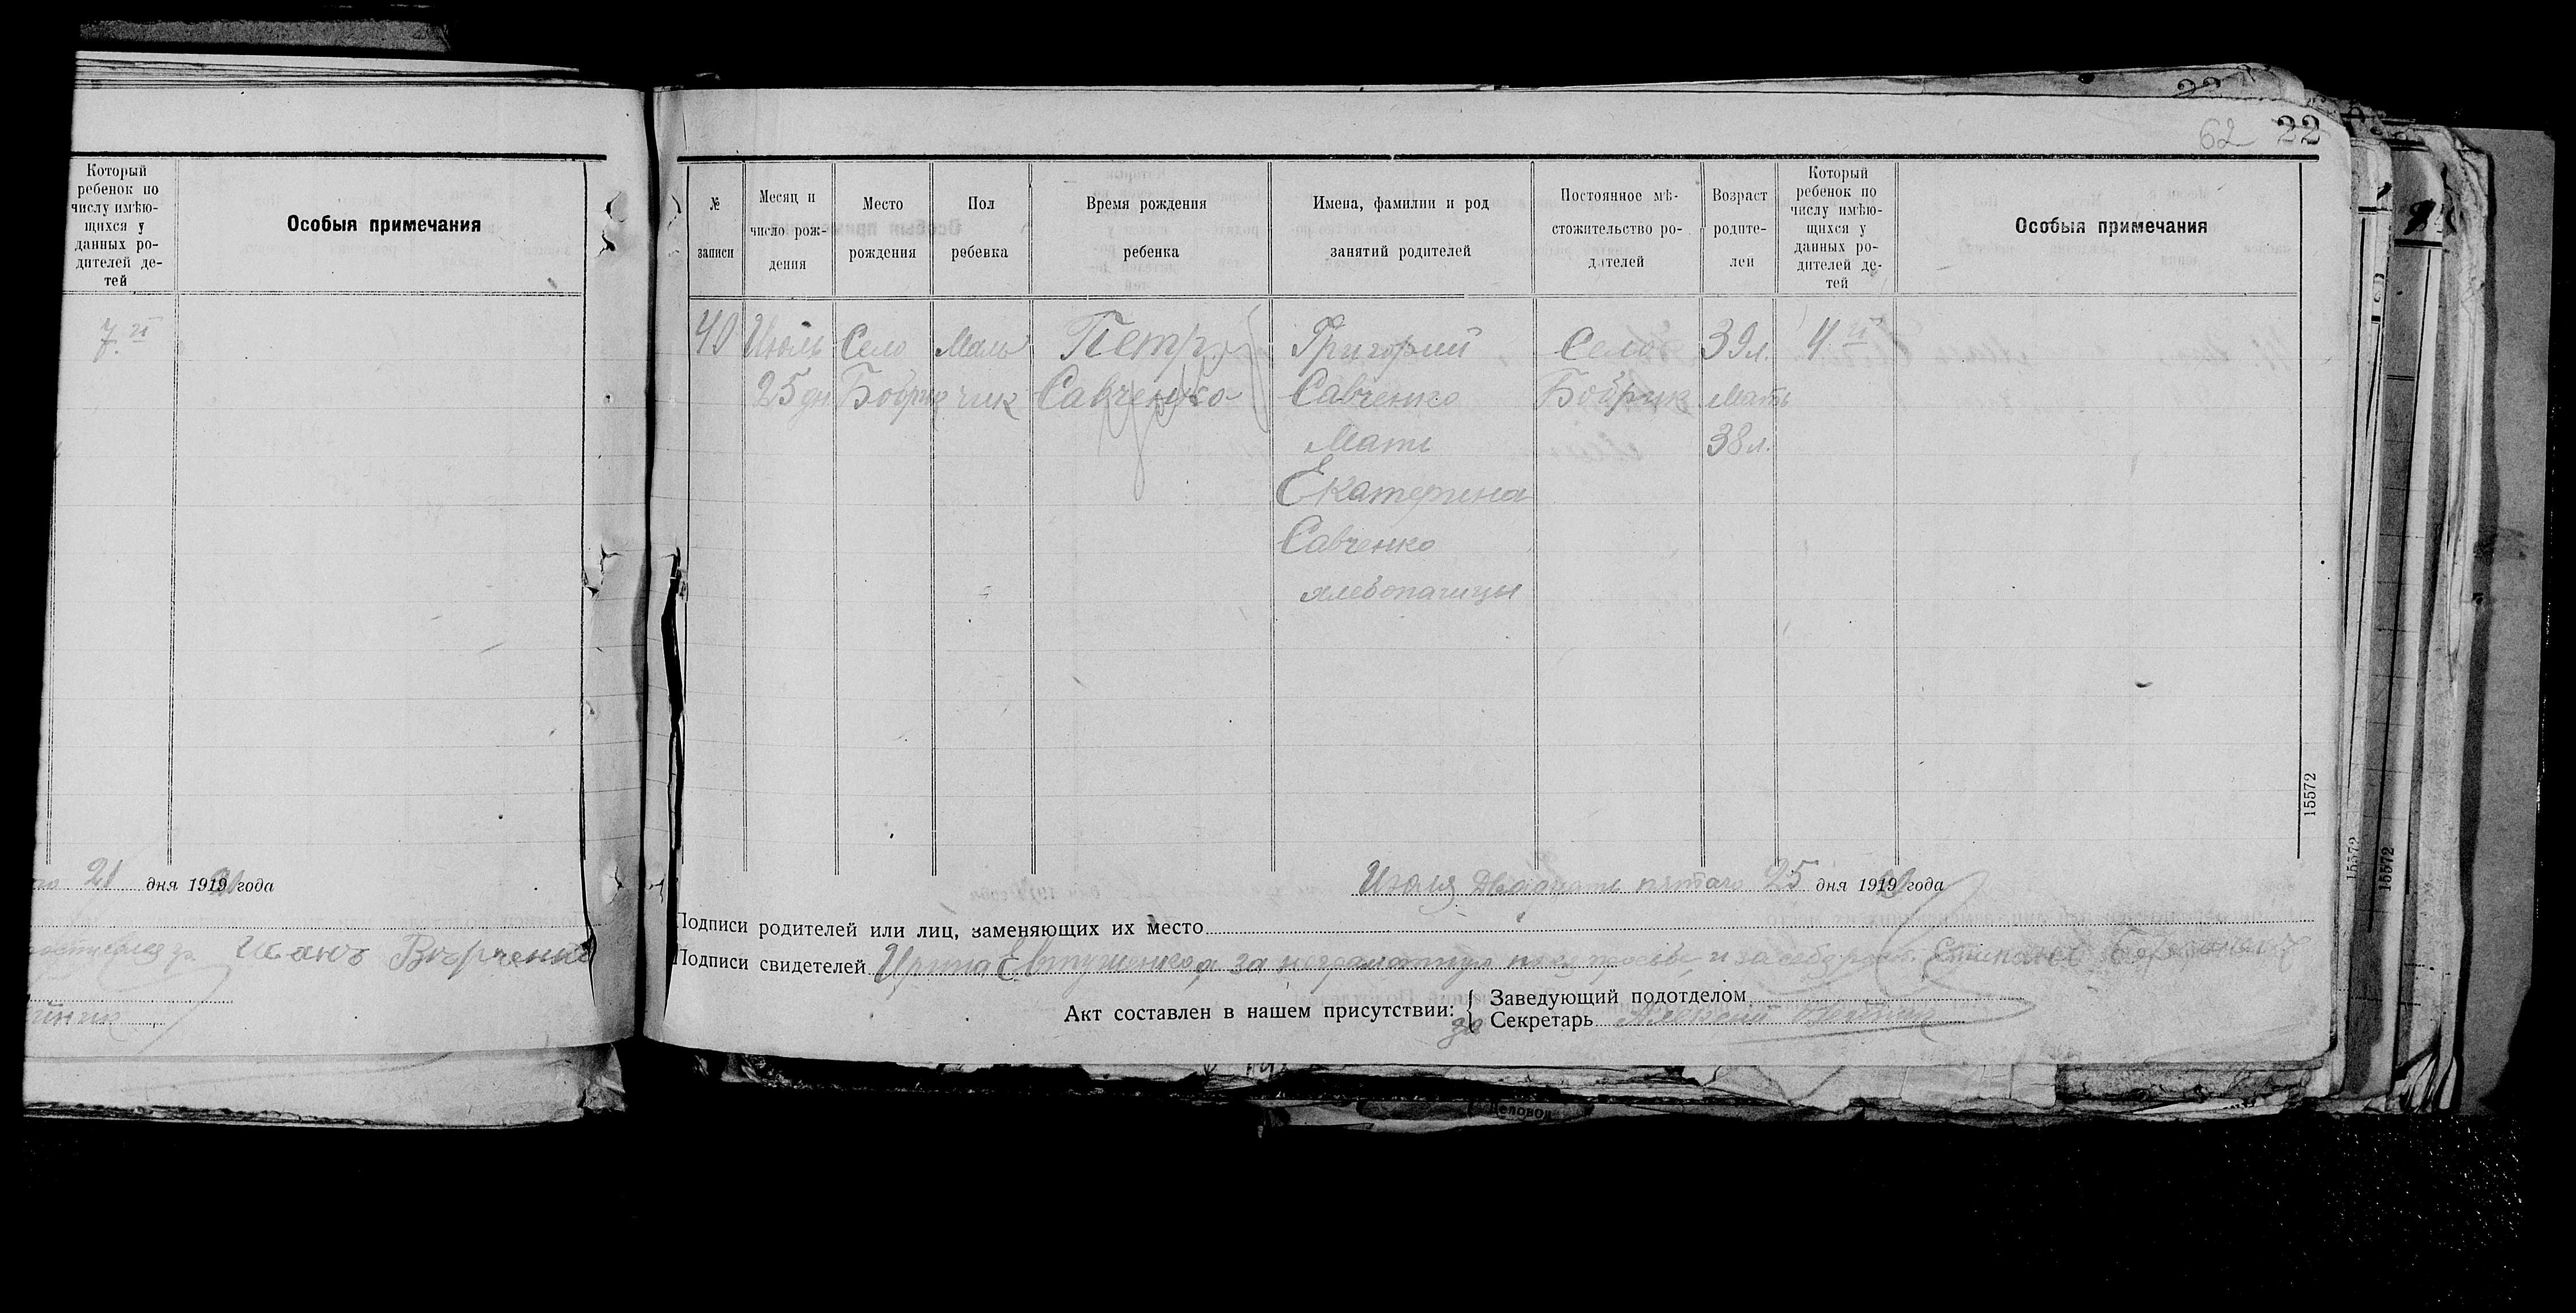 Который
ребенок по
числу имѣю-
щихся у
данных ро-
дителей де-
тей
Особыя примечания
7.й
21 дня 1919 года
Иванъ
62 22
№
записи
Месяц и
число рож-
дения
Место
рождения
Пол
ребенка
Время рождения
ребенка
Имена, фамилии и род
занятий родителей
Постоянное мѣ-
стожительство ро-
дителей
Возраст
родите-
лей
Который
ребенок по
числу имѣю-
щихся у
данных ро-
дителей де-
тей
Особыя примечания
40 Июль Село Маль Петр Григорий Село 39л. 4й
25 дн Бобрик чик Савченко Савченко Бобрик Мать
Мать 38л.
Екатерина
Савченко
хлебопашцы
15572
15572
15572
Июля Двадцать пятого 25 дня 1919 года
Подписи родителей или лиц, заменяющих их место
Подписи свидетелей Ирина Евтушенкова за неграмотную по ее просьбе и за себя
Акт составлен в нашем присутствии: { Заведующий подотделом
за Секретарь Алексей